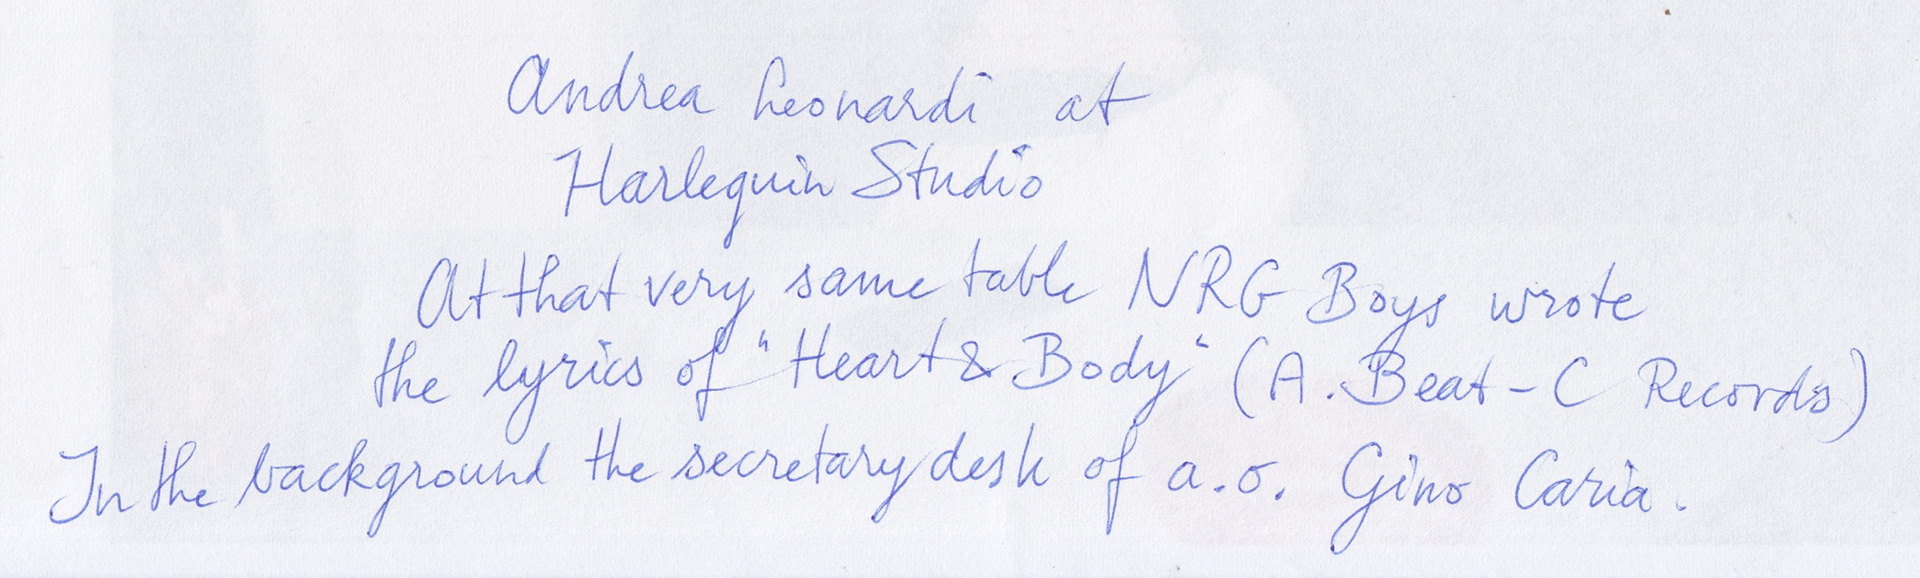 Andrea Leonardi at
Harlequin Studio
At that very same table NRG Boys wrote
the lyrics of "Heart & Body" (A.Beat-C Records)
In the background the secretary desk of a.o. Gino Caria.